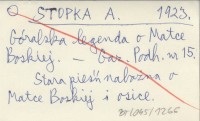 STOPKA A. 1923.
Góralska legenda o Matce
Boskiej. — Gaz. Podh. nr 15.
Stara pieśń nabożna o
Matce Boskiej i osice.